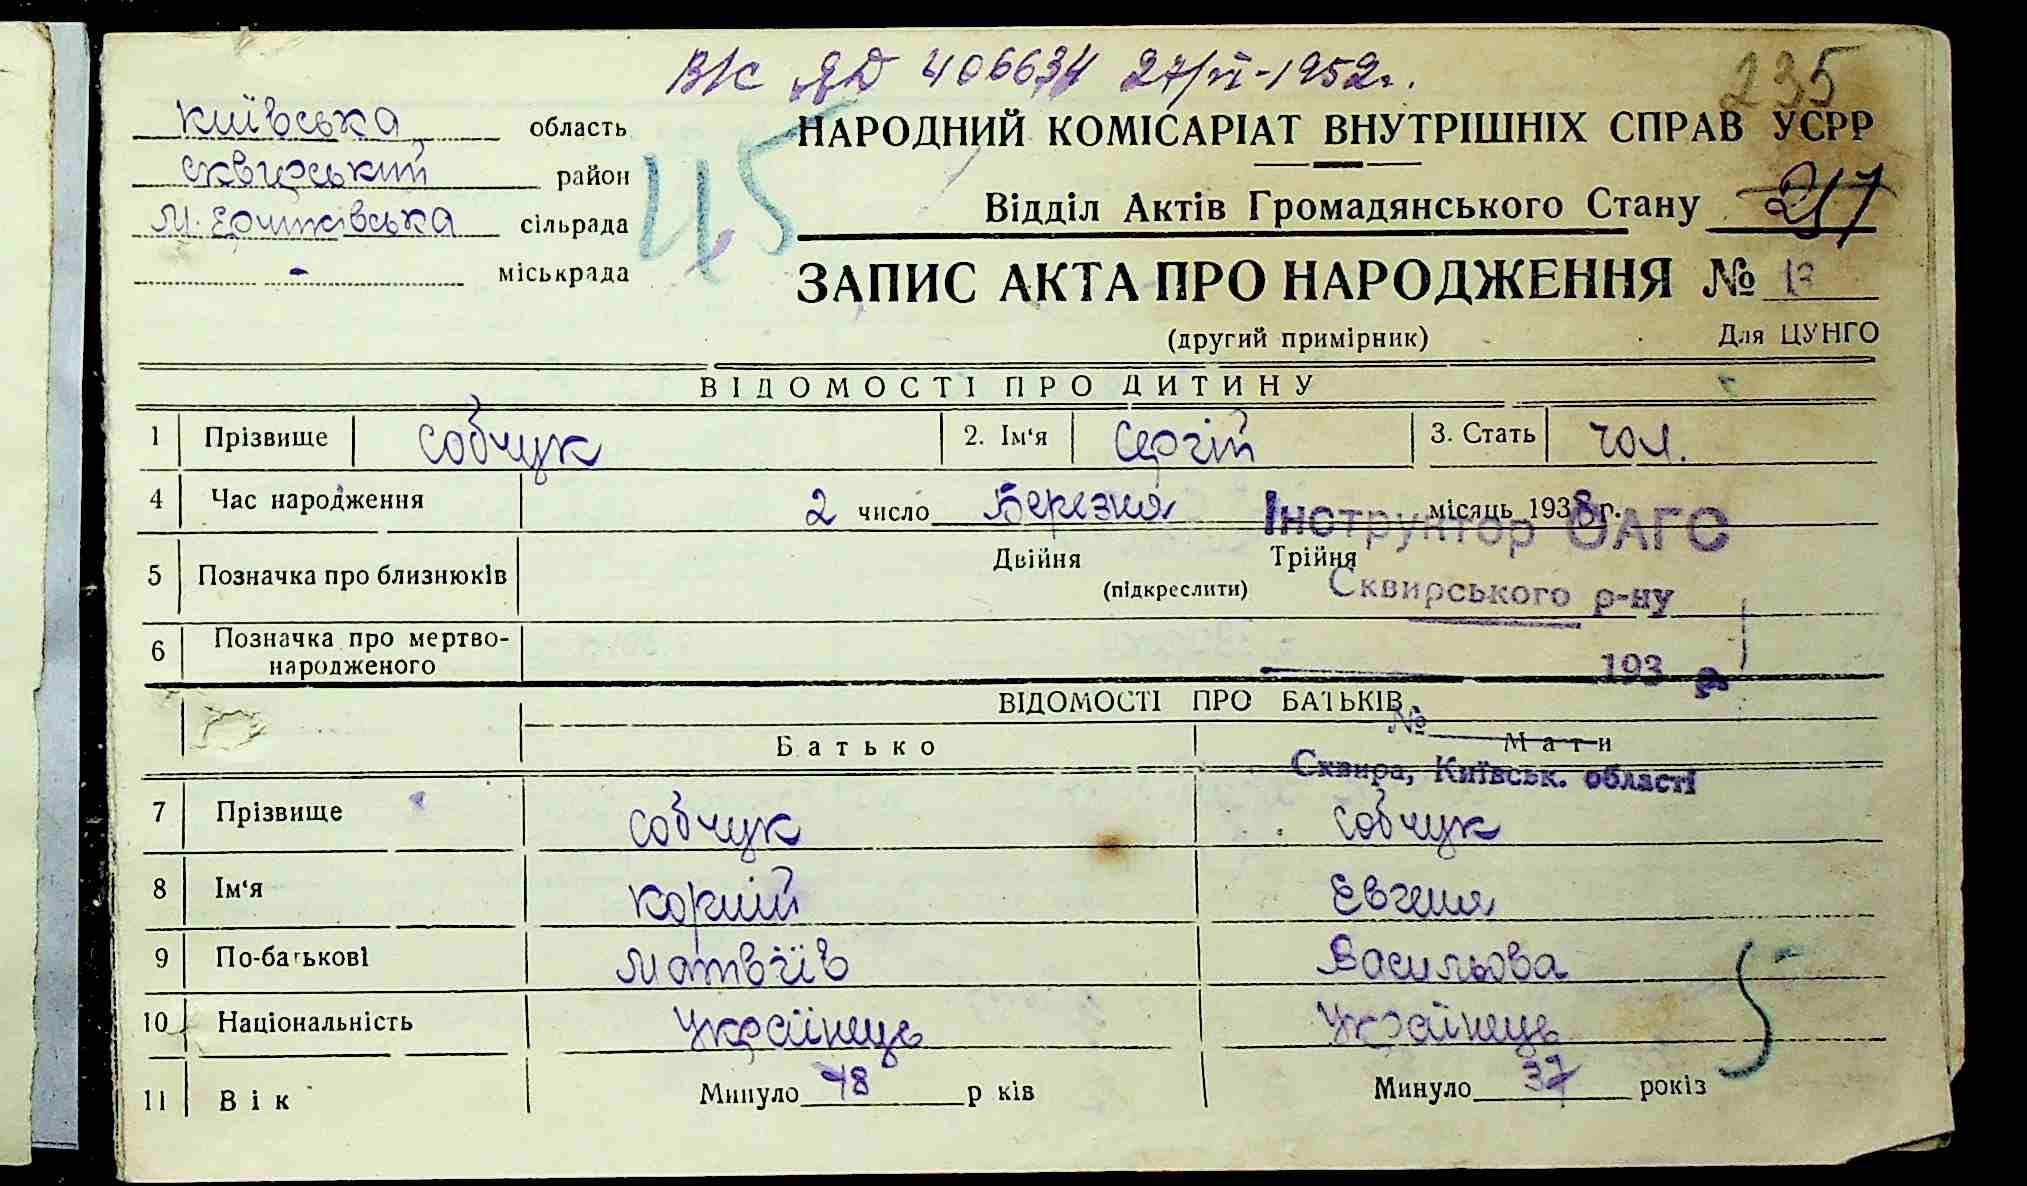 В/с ЯД 406634 27/VI-1952г.
235
Київська область
Сквирський район
М. Єрчиківська сільрада
- міськрада
45
НАРОДНИЙ КОМІСАРІАТ ВНУТРІШНІХ СПРАВ УСРР
Відділ Актів Громадянського Стану 217
ЗАПИС АКТА ПРО НАРОДЖЕННЯ № 13
(другий примірник) Для ЦУНГО
ВІДОМОСТІ ПРО ДИТИНУ
1 Прізвище Собчук 2. Ім‘я Сергій 3. Стать чол.
4 Час народження 2 число Березня місяць 1938 р.
Інструктор ОАГС
5 Позначка про близнюків Двійня Трійня
(підкреслити)
Сквирського р-ну
6 Позначка про мертво-
народженого
193 р.
ВІДОМОСТІ ПРО БАТЬКІВ
№
Батько Мати
Сквира, Київськ. області
7 Прізвище Собчук Собчук
8 Ім‘я Корній Евгения
9 По-батькові Матвіїв Васильова
10 Національність Українець Українець
11 Вік Минуло 48 р ків Минуло 37 років
5